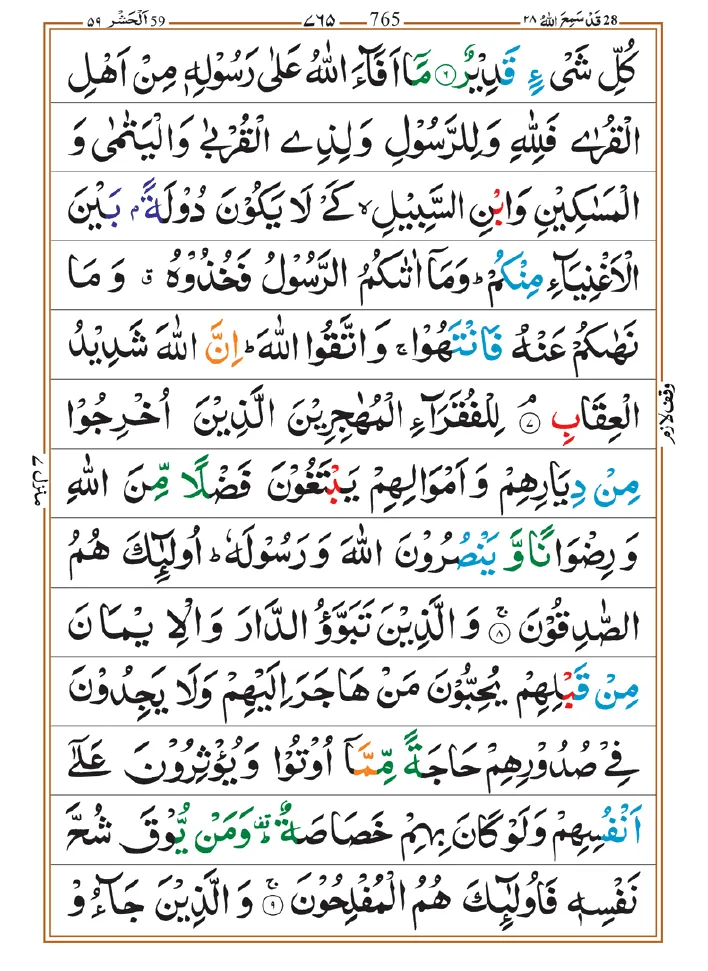 59 اَلْحَشْر ٥٩ ٧٦٥ 765 28 قَدْ سَمِعَ اللّٰهُ ٢٨
كُلِّ شَیْءٍ قَدِیْرٌ ۝٦ مَاۤ اَفَآءَ اللّٰهُ عَلٰی رَسُوْلِهٖ مِنْ اَهْلِ
الْقُرٰی فَلِلّٰهِ وَ لِلرَّسُوْلِ وَ لِذِی الْقُرْبٰی وَ الْیَتٰمٰی وَ
الْمَسٰكِیْنِ وَ ابْنِ السَّبِیْلِ ۙ كَیْ لَا یَكُوْنَ دُوْلَةًۢ بَیْنَ
الْاَغْنِیَآءِ مِنْكُمْ ؕ وَ مَاۤ اٰتٰىكُمُ الرَّسُوْلُ فَخُذُوْهُ ۗ وَ مَا
نَهٰىكُمْ عَنْهُ فَانْتَهُوْا ۚ وَ اتَّقُوا اللّٰهَ ؕ اِنَّ اللّٰهَ شَدِیْدُ
الْعِقَابِ ۘ۝٧ لِلْفُقَرَآءِ الْمُهٰجِرِیْنَ الَّذِیْنَ اُخْرِجُوْا
وقف لازم
مِنْ دِیَارِهِمْ وَ اَمْوَالِهِمْ یَبْتَغُوْنَ فَضْلًا مِّنَ اللّٰهِ
منزل ٧
وَ رِضْوَانًا وَّ یَنْصُرُوْنَ اللّٰهَ وَ رَسُوْلَهٗ ؕ اُولٰٓىِٕكَ هُمُ
الصّٰدِقُوْنَ ۚ۝٨ وَ الَّذِیْنَ تَبَوَّؤُ الدَّارَ وَ الْاِیْمَانَ
مِنْ قَبْلِهِمْ یُحِبُّوْنَ مَنْ هَاجَرَ اِلَیْهِمْ وَلَا یَجِدُوْنَ
فِیْ صُدُوْرِهِمْ حَاجَةً مِّمَّاۤ اُوْتُوْا وَ یُؤْثِرُوْنَ عَلٰۤی
اَنْفُسِهِمْ وَ لَوْ كَانَ بِهِمْ خَصَاصَةٌ ؕ۫ وَ مَنْ یُّوْقَ شُحَّ
نَفْسِهٖ فَاُولٰٓىِٕكَ هُمُ الْمُفْلِحُوْنَ ۚ۝٩ وَ الَّذِیْنَ جَآءُوْ